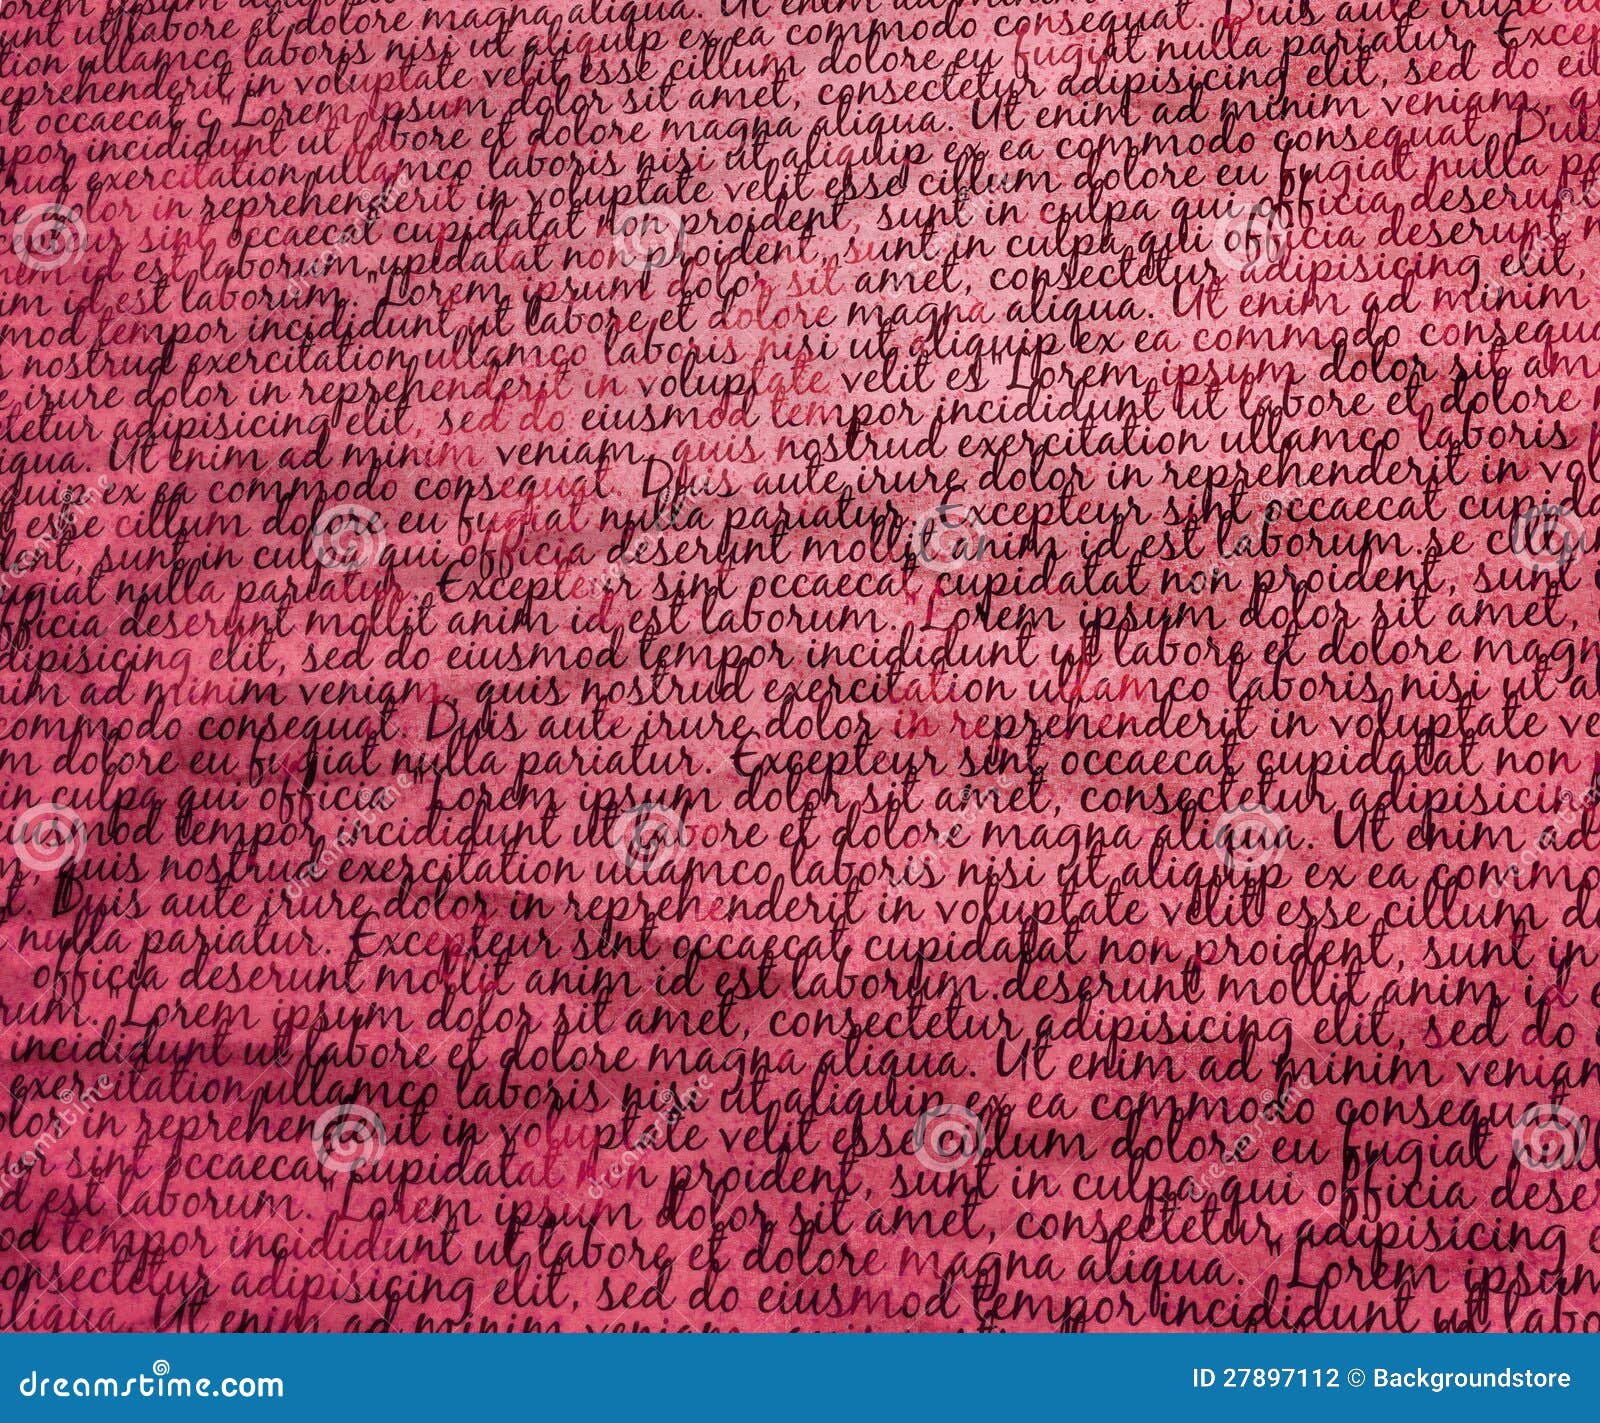 lorem ipsum dolor magna aliqua. Ut enim ad minim
unt ut labore et dolore magna aliqua. Ut enim ad consequat. Duis aute irure do
tion ullamco laboris nisi ut aliquip ex ea commodo consequat. Duis aute irure
eprehenderit in voluptate velit esse cillum dolore eu fugiat nulla pariatur. Excep
t occaecat c "Lorem ipsum dolor sit amet, consectetur adipisicing elit, sed do ei
mpor incididunt ut labore et dolore magna aliqua. Ut enim ad minim veniam, q
rud exercitation ullamco laboris nisi ut aliquip ex ea commodo consequat. Duis
re dolor in reprehenderit in voluptate velit esse cillum dolore eu fugiat nulla pa
cepteur sint occaecat cupidatat non proident, sunt in culpa qui officia deserunt
nim id est laborum."upidatat non proident, sunt in culpa qui officia deserunt m
im id est laborum. "Lorem ipsum dolor sit amet, consectetur adipisicing elit,
mod tempor incididunt ut labore et dolore magna aliqua. Ut enim ad minim
s nostrud exercitation ullamco laboris nisi ut aliquip ex ea commodo consequa
e irure dolor in reprehenderit in voluptate velit es "Lorem ipsum dolor sit am
tetur adipisicing elit, sed do eiusmod tempor incididunt ut labore et dolore
iqua. Ut enim ad minim veniam, quis nostrud exercitation ullamco laboris
quip ex ea commodo consequat. Duis aute irure dolor in reprehenderit in vol
esse cillum dolore eu fugiat nulla pariatur. Excepteur sint occaecat cupida
dent, sunt in culpa qui officia deserunt mollit anim id est laborum.se cillum
ugiat nulla pariatur. Excepteur sint occaecat cupidatat non proident, sunt
fficia deserunt mollit anim id est laborum. "Lorem ipsum dolor sit amet,
dipisicing elit, sed do eiusmod tempor incididunt ut labore et dolore magn
nim ad minim veniam, quis nostrud exercitation ullamco laboris nisi ut al
commodo consequat. Duis aute irure dolor in reprehenderit in voluptate ve
m dolore eu fugiat nulla pariatur. Excepteur sint occaecat cupidatat non
in culpa qui officia "Lorem ipsum dolor sit amet, consectetur adipisicing
eiusmod tempor incididunt ut labore et dolore magna aliqua. Ut enim ad
m, quis nostrud exercitation ullamco laboris nisi ut aliquip ex ea commo
t. Duis aute irure dolor in reprehenderit in voluptate velit esse cillum do
nulla pariatur. Excepteur sint occaecat cupidatat non proident, sunt in
officia deserunt mollit anim id est laborum.deserunt mollit anim id e
rum. "Lorem ipsum dolor sit amet, consectetur adipisicing elit, sed do
incididunt ut labore et dolore magna aliqua. Ut enim ad minim veniam
exercitation ullamco laboris nisi ut aliquip ex ea commodo consequat.
olor in reprehenderit in voluptate velit esse cillum dolore eu fugiat null
ur sint occaecat cupidatat non proident, sunt in culpa qui officia dese
d est laborum. "Lorem ipsum dolor sit amet, consectetur adipisicing e
od tempor incididunt ut labore et dolore magna aliqua. "Lorem ipsum
onsectetur adipisicing elit, sed do eiusmod tempor incididunt ut labo
aliqua. Ut enim ad minim veniam, quis nostrud
dreamstime.com
ID 27897112 © Backgroundstore